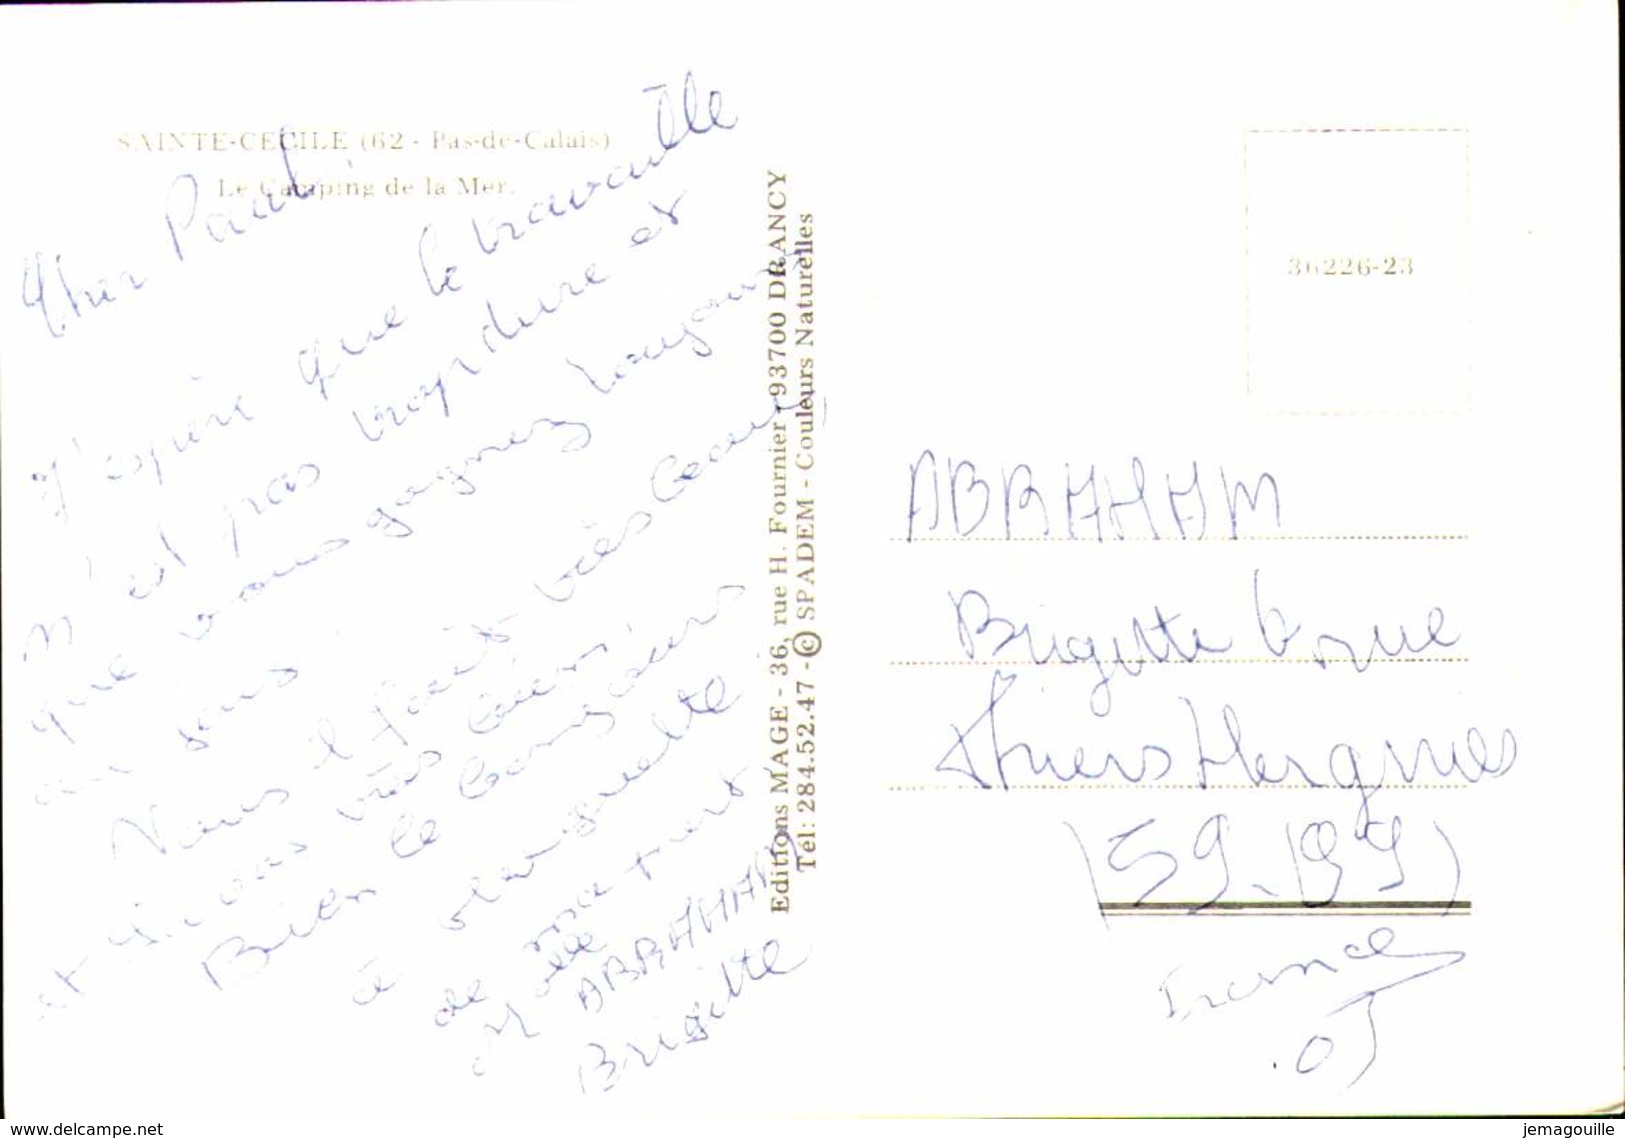 SAINTE-CECILE (62 - Pas-de-Calais)
Le Camping de la Mer.
Cher Paul
J'espère que le travaille
n'est pas trop dure et
que vous gagnez toujours
au sous
Nous il fait très beau,
et
Bien le bonjours
à
de ma part
Melle
ABRAHAM
Brigitte
Editions MAGE - 36, rue H. Fournier - 93700 DRANCY
Tél: 284.52.47 - © SPADEM - Couleurs Naturelles
36226-23
ABRAHAM
Brigitte 6 rue
Thiers Hergnies
(59.199)
France
www.delcampe.net
jemagouille